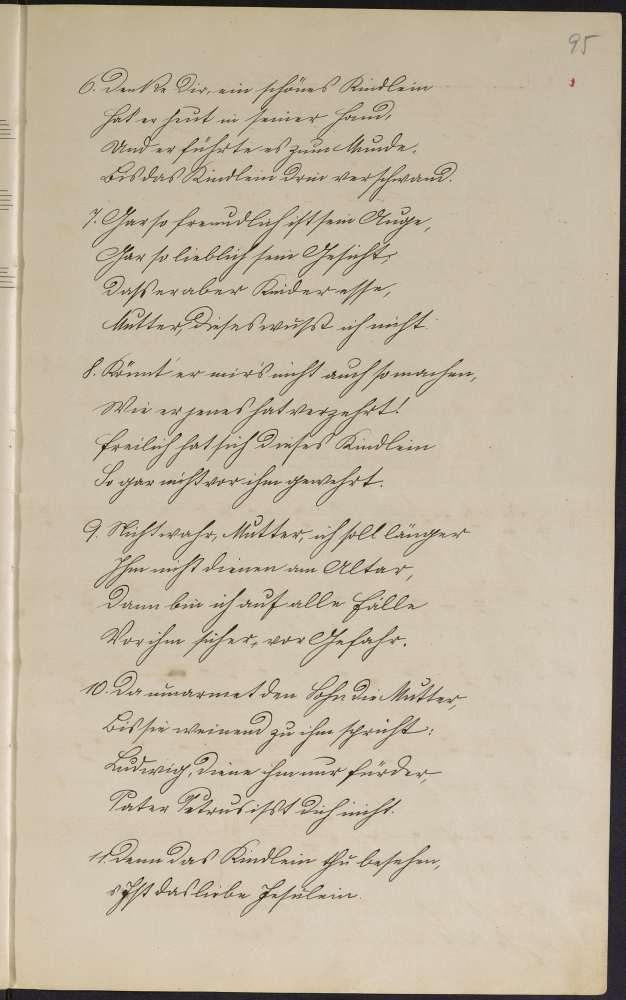 95
6. Denke Dir, ein schönes Kindlein
Hat er heut in seiner Hand,
Und er führte es zum Munde,
Bis das Kindlein drin verschwand.
7. Gar so freundlich ist sein Auge,
Gar so lieblich sein Gesicht,
Dass er aber Kinder esse,
Mutter, dieses wusst ich nicht.
8. Könnt' er mir's nicht auch so machen,
Wie er jenes hat verzehrt!
Freilich hat sich dieses Kindlein
So gar nicht vor ihm gewehrt.
9. Nicht wahr, Mutter, ich soll länger
Ihm nicht dienen am Altar,
Dann bin ich auf alle Fälle
Vor ihm sicher, vor Gefahr.
10. Da umarmet den Sohn die Mutter,
Bis sie weinend zu ihm spricht:
Ludwig, diene ihm nur fürder,
Pater Petrus isst dich nicht.
11. Denn das Kindlein thu besehen,
's Ist das liebe Jesulein.